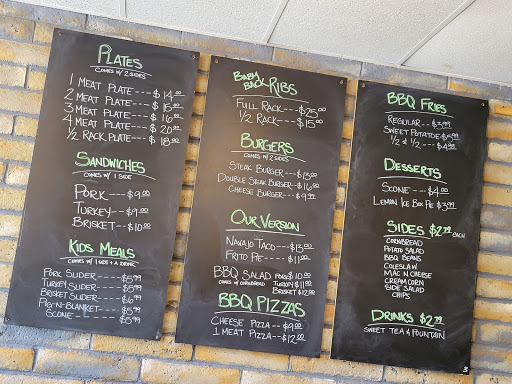 PLATES
COMES W/ 2 SIDES
1 MEAT PLATE --- $ 14.00
2 MEAT PLATE --- $ 15.00
3 MEAT PLATE --- $ 16.00
4 MEAT PLATE --- $ 20.00
1/2 RACK PLATE -- $ 18.00
SANDWICHES
COMES W/ 1 SIDE
PORK --- $9.00
TURKEY -- $9.00
BRISKET -- $10.00
KIDS MEALS
COMES W/ 1 SIDE + A DRINK
PORK SLIDER ---- $5.99
TURKEY SLIDER --- $5.99
BRISKET SLIDER --- $6.99
PIG-N-BLANKET --- $5.99
SCONE ---- $5.99
BABY BACK RIBS
FULL RACK --- $25.00
1/2 RACK --- $15.00
BURGERS
COMES W/ 2 SIDES
STEAK BURGER --- $13.00
DOUBLE STEAK BURGER -- $16.00
CHEESE BURGER -- $9.99
OUR VERSION
NAVAJO TACO -- $13.00
FRITO PIE ---- $11.00
BBQ SALAD PORK $10.00
COMES W/ CORNBREAD TURKEY $11.00
BRISKET $12.00
BBQ PIZZAS
CHEESE PIZZA -- $9.00
1 MEAT PIZZA -- $12.00
BBQ FRIES
REGULAR -- $3.99
SWEET POTATOE $3.99
1/2 & 1/2 --- $4.99
DESSERTS
SCONE --- $4.00
LEMON ICE BOX PIE $3.99
SIDES $2.79 EACH
CORNBREAD
POTATO SALAD
BBQ BEANS
COLESLAW
MAC N CHEESE
CREAM CORN
SIDE SALAD
CHIPS
DRINKS $2.79
SWEET TEA & FOUNTAIN